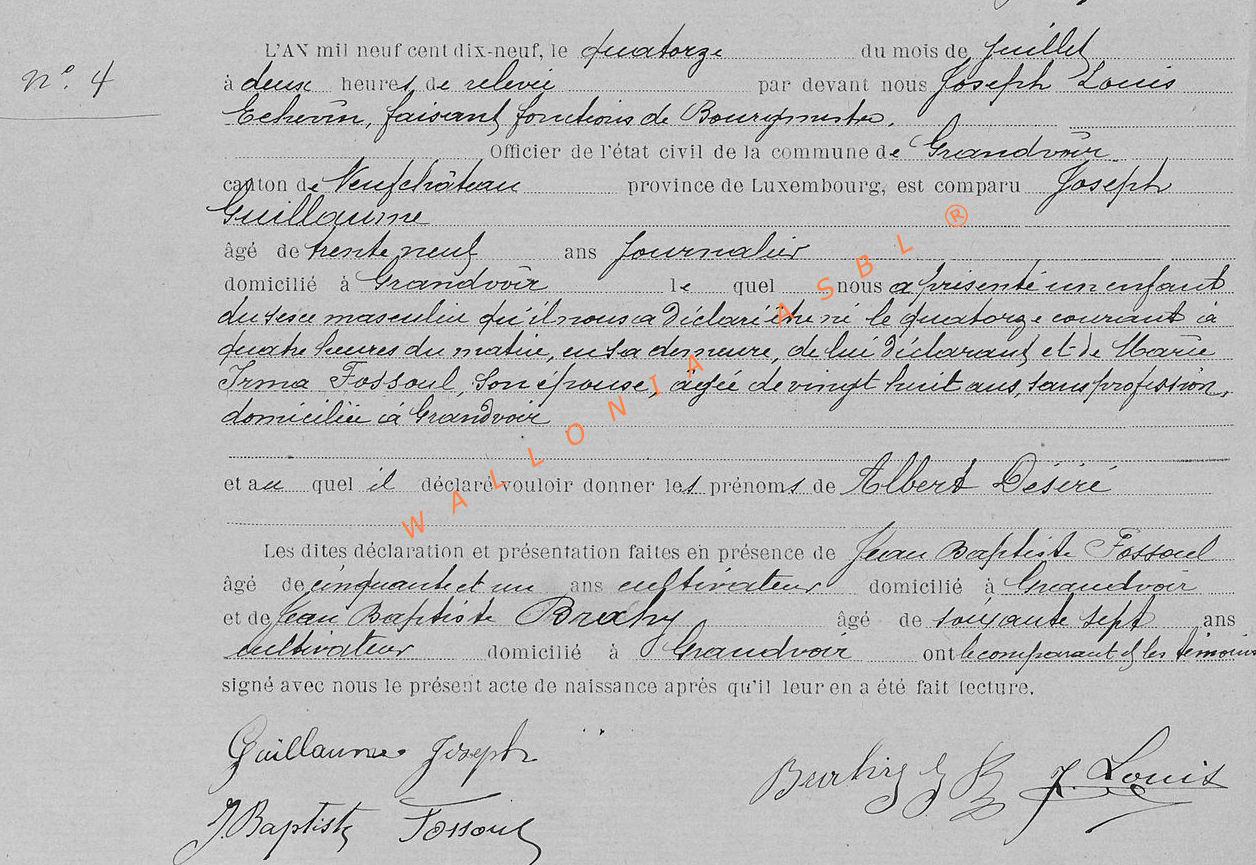 L'AN mil neuf cent dix-neuf, le quatorze du mois de Juillet
n° 4
à deux heures de relevée par devant nous Joseph Louis
Echevin, faisant fonctions de Bourgmestre,
Officier de l'état civil de la commune de Grandvoir
canton de Neufchâteau province de Luxembourg, est comparu Joseph
Guillaume
âgé de trente neuf ans Journalier
domicilié à Grandvoir le quel nous a présenté un enfant
du sexe masculin qu'il nous a déclaré être né le quatorze courant à
quatre heures du matin, en sa demeure, de lui déclarant et de Marie
Irma Fossoul, son épouse, âgée de vingt huit ans, sans profession,
domiciliée à Grandvoir
et au quel il déclaré vouloir donner les prénoms de Albert Désiré
Les dites déclaration et présentation faites en présence de Jean Baptiste Fossoul
âgé de cinquante et un ans cultivateur domicilié à Grandvoir
et de Jean Baptiste âgé de soixante sept ans
cultivateur domicilié à Grandvoir ont le comparant et les témoins
signé avec nous le présent acte de naissance après qu'il leur en a été fait lecture.
Guillaume Joseph
J. Louis
J. Baptiste Fossoul
WALLONIA ASBL ®